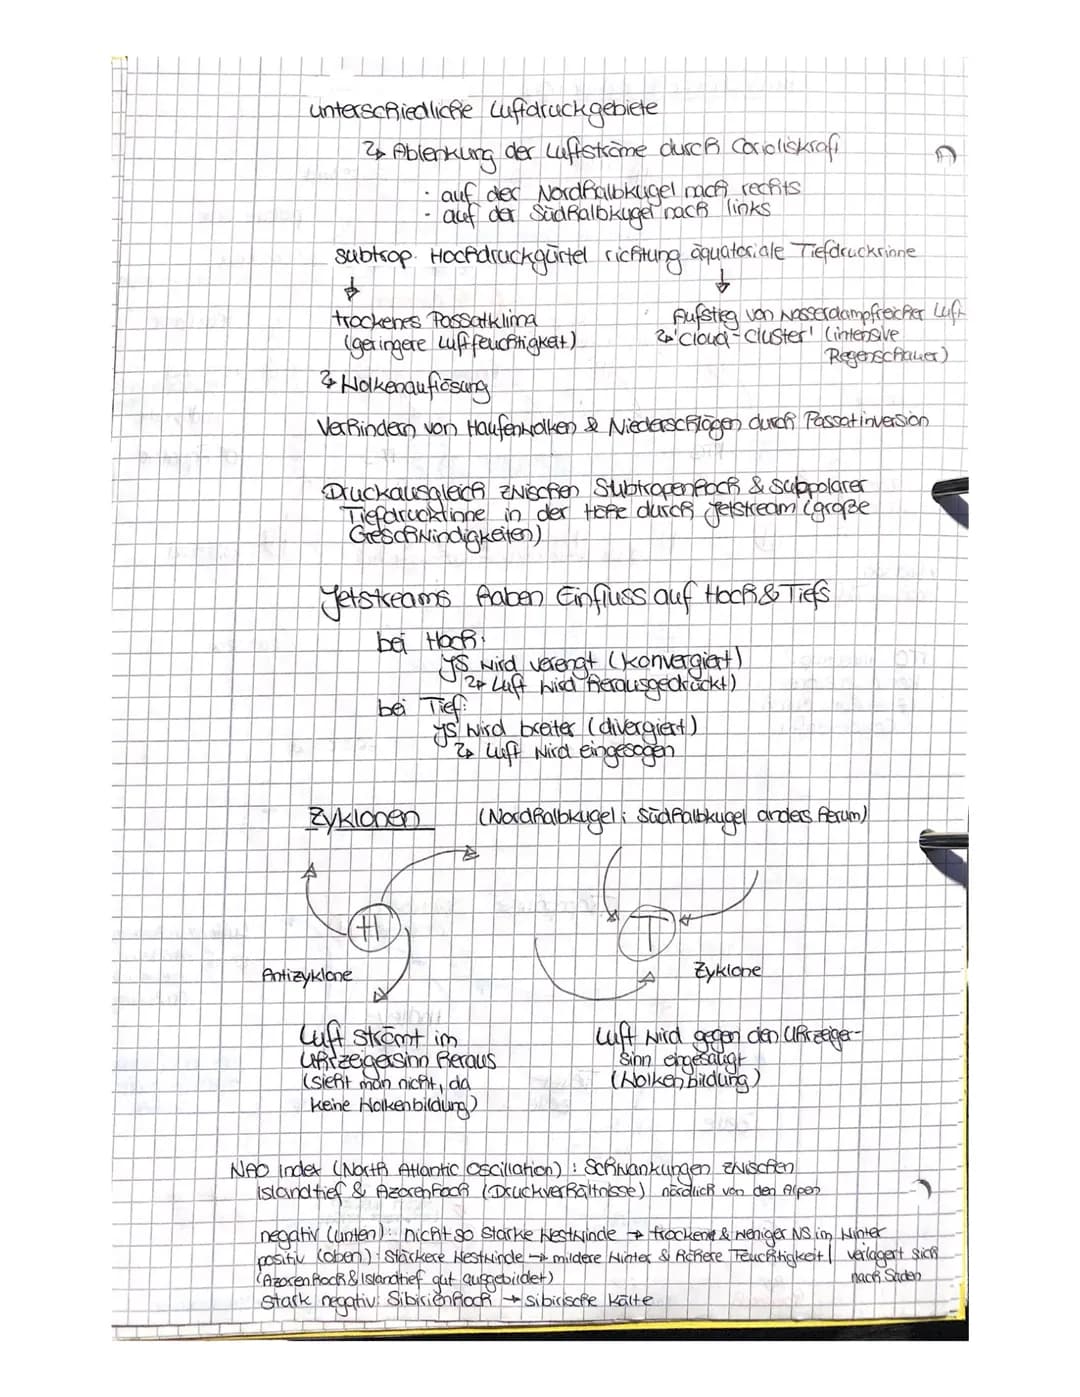 unterschiedliche Luftdruckgebiete
↳ Ablenkung der Luftströme durch Corioliskraft
· auf der Nordhalbkugel nach rechts
- auf der Südhalbkugel nach links
subtrop. Hochdruckgürtel richtung äquatoriale Tiefdruckrinne
↓ ↓
trockenes Passatklima
(geringere Luftfeuchtigkeit)
Aufstieg von wasserdampfreicher Luft
↳ 'Cloud-Cluster' (intensive
Regenschauer)
↳ Wolkenauflösung
Verhindern von Haufenwolken & Niederschlägen durch Passatinversion
Druckausgleich zwischen Subtropenhoch & subpolarer
Tiefdruckrinne in der Höhe durch Jetstream (große
Geschwindigkeiten)
Jetstreams haben Einfluss auf Hoch & Tiefs
bei Hoch:
JS wird verengt (konvergiert)
↳ Luft wird herausgedrückt)
bei Tief:
JS wird breiter (divergiert)
↳ Luft wird eingesogen
Zyklonen (Nordhalbkugel; Südhalbkugel anders herum)
H T
Antizyklone
Zyklone
Luft strömt im
Uhrzeigersinn heraus
(sieht man nicht, da
keine Wolkenbildung)
Luft wird gegen den Uhrzeiger-
sinn eingesaugt
(Wolkenbildung)
NAO Index (North Atlantic Oscillation): Schwankungen zwischen
Islandtief & Azorenhoch (Druckverhältnisse) nördlich von den Alpen
negativ (unten): nicht so starke Westwinde → trockene & weniger NS im Winter
positiv (oben): stärkere Westwinde → mildere Winter & höhere Feuchtigkeit | verlagert sich
nach Süden
(Azorenhoch & Islandtief gut ausgebildet)
stark negativ: Sibirienhoch → sibirische Kälte